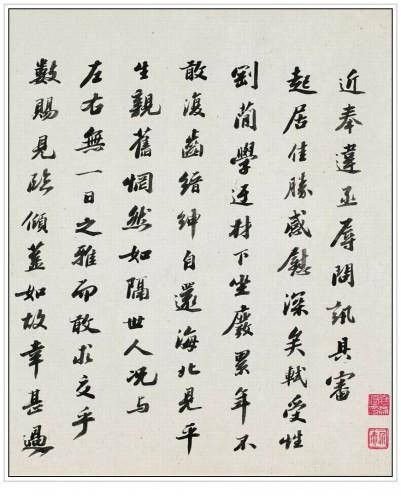 近奉違亟辱問訊具審
起居佳勝感慰深矣軾受性
剛簡學迂材下坐廢累年不
敢復齒縉紳自還海北見平
生親舊惘然如隔世人況與
左右無一日之雅而敢求交乎
數賜見臨傾蓋如故幸甚過